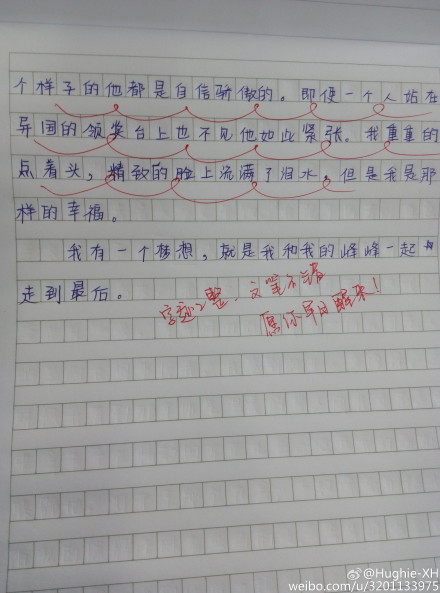 个样子的他都是自信骄傲的。即便一个人站在
异国的领奖台上也不见他如此紧张。我重重的
点着头，精致的脸上流满了泪水，但是我是那
样的幸福。
我有一个梦想，就是我和我的峰峰一起
走到最后。
字迹工整，文笔不错
愿你早日醒来！
@Hughie-XH
weibo.com/u/3201133975